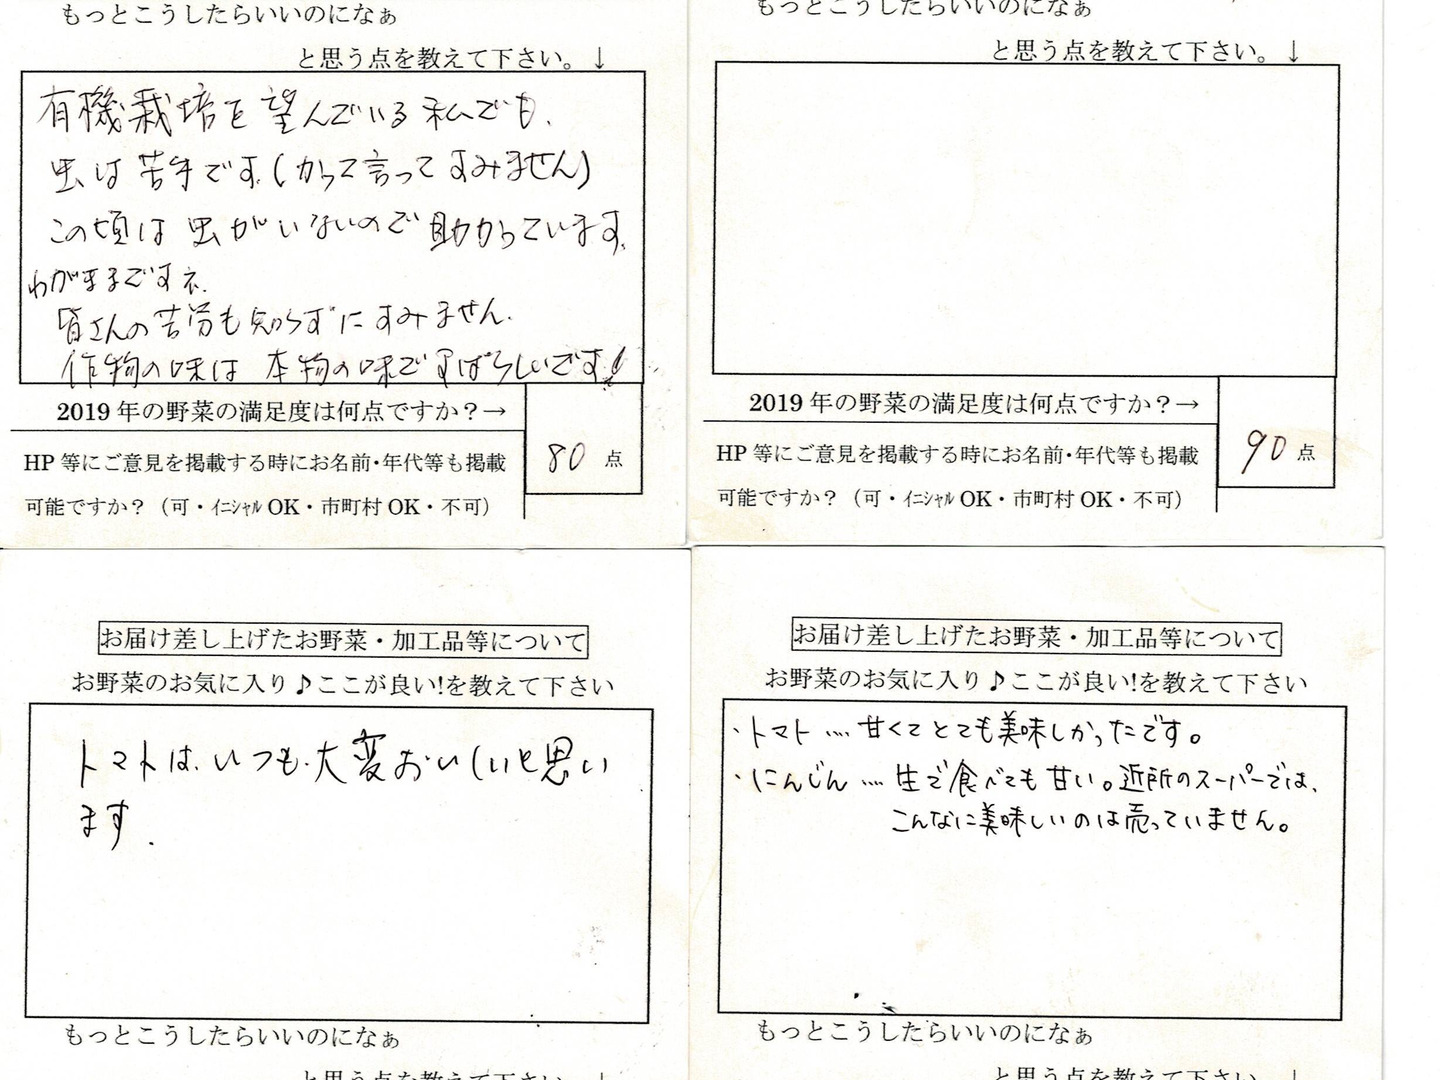 もっとこうしたらいいのになぁ
と思う点を教えて下さい。↓
有機栽培を望んでいる私でも、
虫は苦手です。(かって言ってすみません)
この頃は虫がいないので助かっています。
わがままですネ.
皆さんの苦労も知らずにすみません.
作物の味は本物の味ですばらしいです!
2019年の野菜の満足度は何点ですか?→
80点
HP等にご意見を掲載する時にお名前・年代等も掲載
可能ですか?(可・イニシャルOK・市町村OK・不可)
もっとこうしたらいいのになぁ
と思う点を教えて下さい。↓
2019年の野菜の満足度は何点ですか?→
90点
HP等にご意見を掲載する時にお名前・年代等も掲載
可能ですか?(可・イニシャルOK・市町村OK・不可)
お届け差し上げたお野菜・加工品等について
お野菜のお気に入り♪ここが良い!を教えて下さい
トマトは、いつも大変おいしいと思い
ます.
もっとこうしたらいいのになぁ
と思う点を教えて下さい。↓
お届け差し上げたお野菜・加工品等について
お野菜のお気に入り♪ここが良い!を教えて下さい
・トマト…. 甘くてとても美味しかったです。
・にんじん…. 生で食べても甘い。近所のスーパーでは、
こんなに美味しいのは売っていません。
もっとこうしたらいいのになぁ
と思う点を教えて下さい。↓